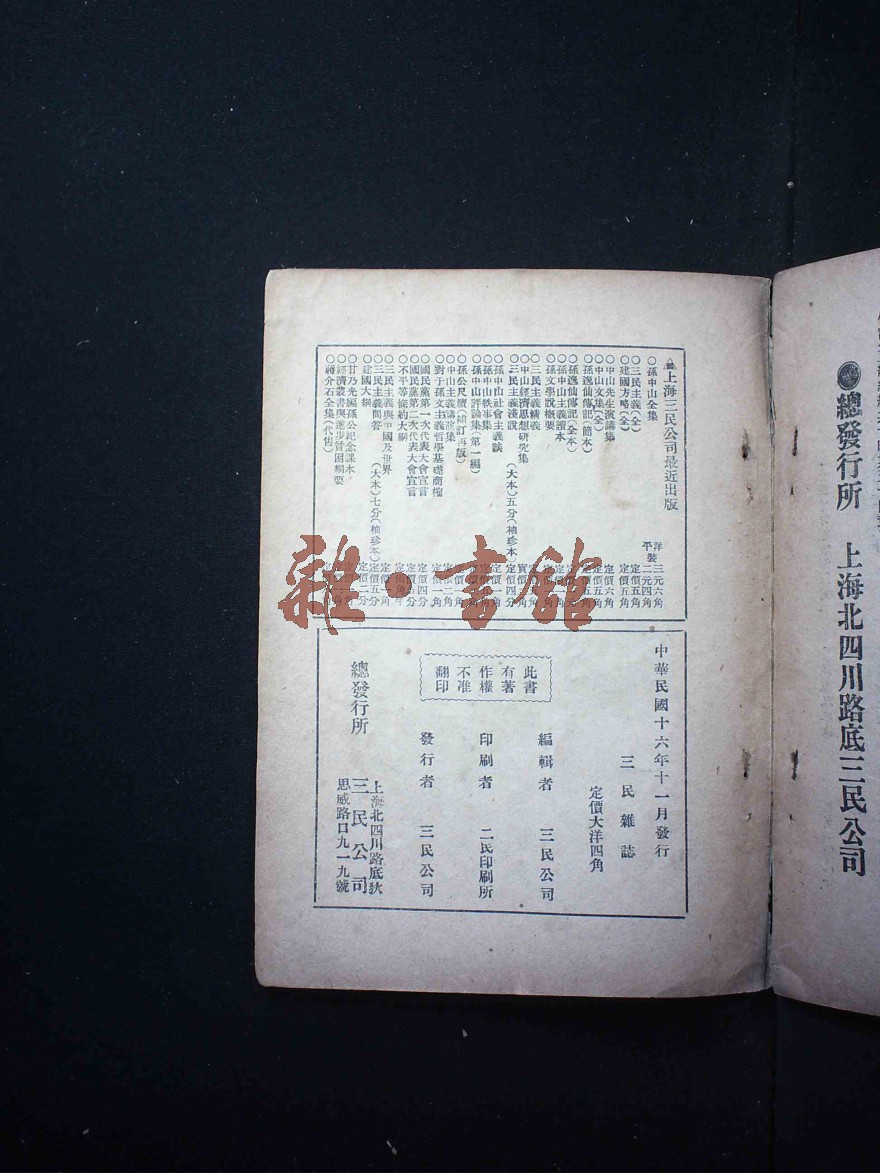 總發行所 上海北四川路底三民公司
上海三民公司最近出版
○孫中山全集 洋裝三元六角 平裝二元四角
○三民主義(全) 定價五角
○建國方略(全) 定價五角
○中山先生演講集 定價六角
○中山文集(全) 定價五角
○孫逸仙傳記(節本)
○孫逸仙傳記(全本)
○孫中山主義讀本
○孫文學說概要
○三民主義精義
○中山經濟思想研究集
○三民主義淺說 (大本)五分(袖珍本)定價四分
○孫中山社會主義談
○孫中山軼事集
○孫中山評論集(第一編)
○孫公尺牘(增訂再版)
○中山主義講演集
○對于孫文主義哲學基礎商榷 定價一角
○國民黨第一次代表大會宣言 定價四分
○國民黨第二次代表大會宣言
○不平等條約大綱
○三民主義與中國及世界 定價一角
○三民主義問答 (大本)七分(袖珍本)定價五分
○建國大綱 定價二分
○甘乃光編孫公紀念課本
○經濟叢書與進步貧困綱要
○蔣介石全集(代售)
中華民國十六年十一月發行
三民雜誌
定價大洋四角
編輯者 三民公司
印刷者 三民印刷所
發行者 三民公司
此書
有著
作權
不准
翻印
總發行所
上海北四川路底狄
三民公司
思威路口九一九號
雜·書館